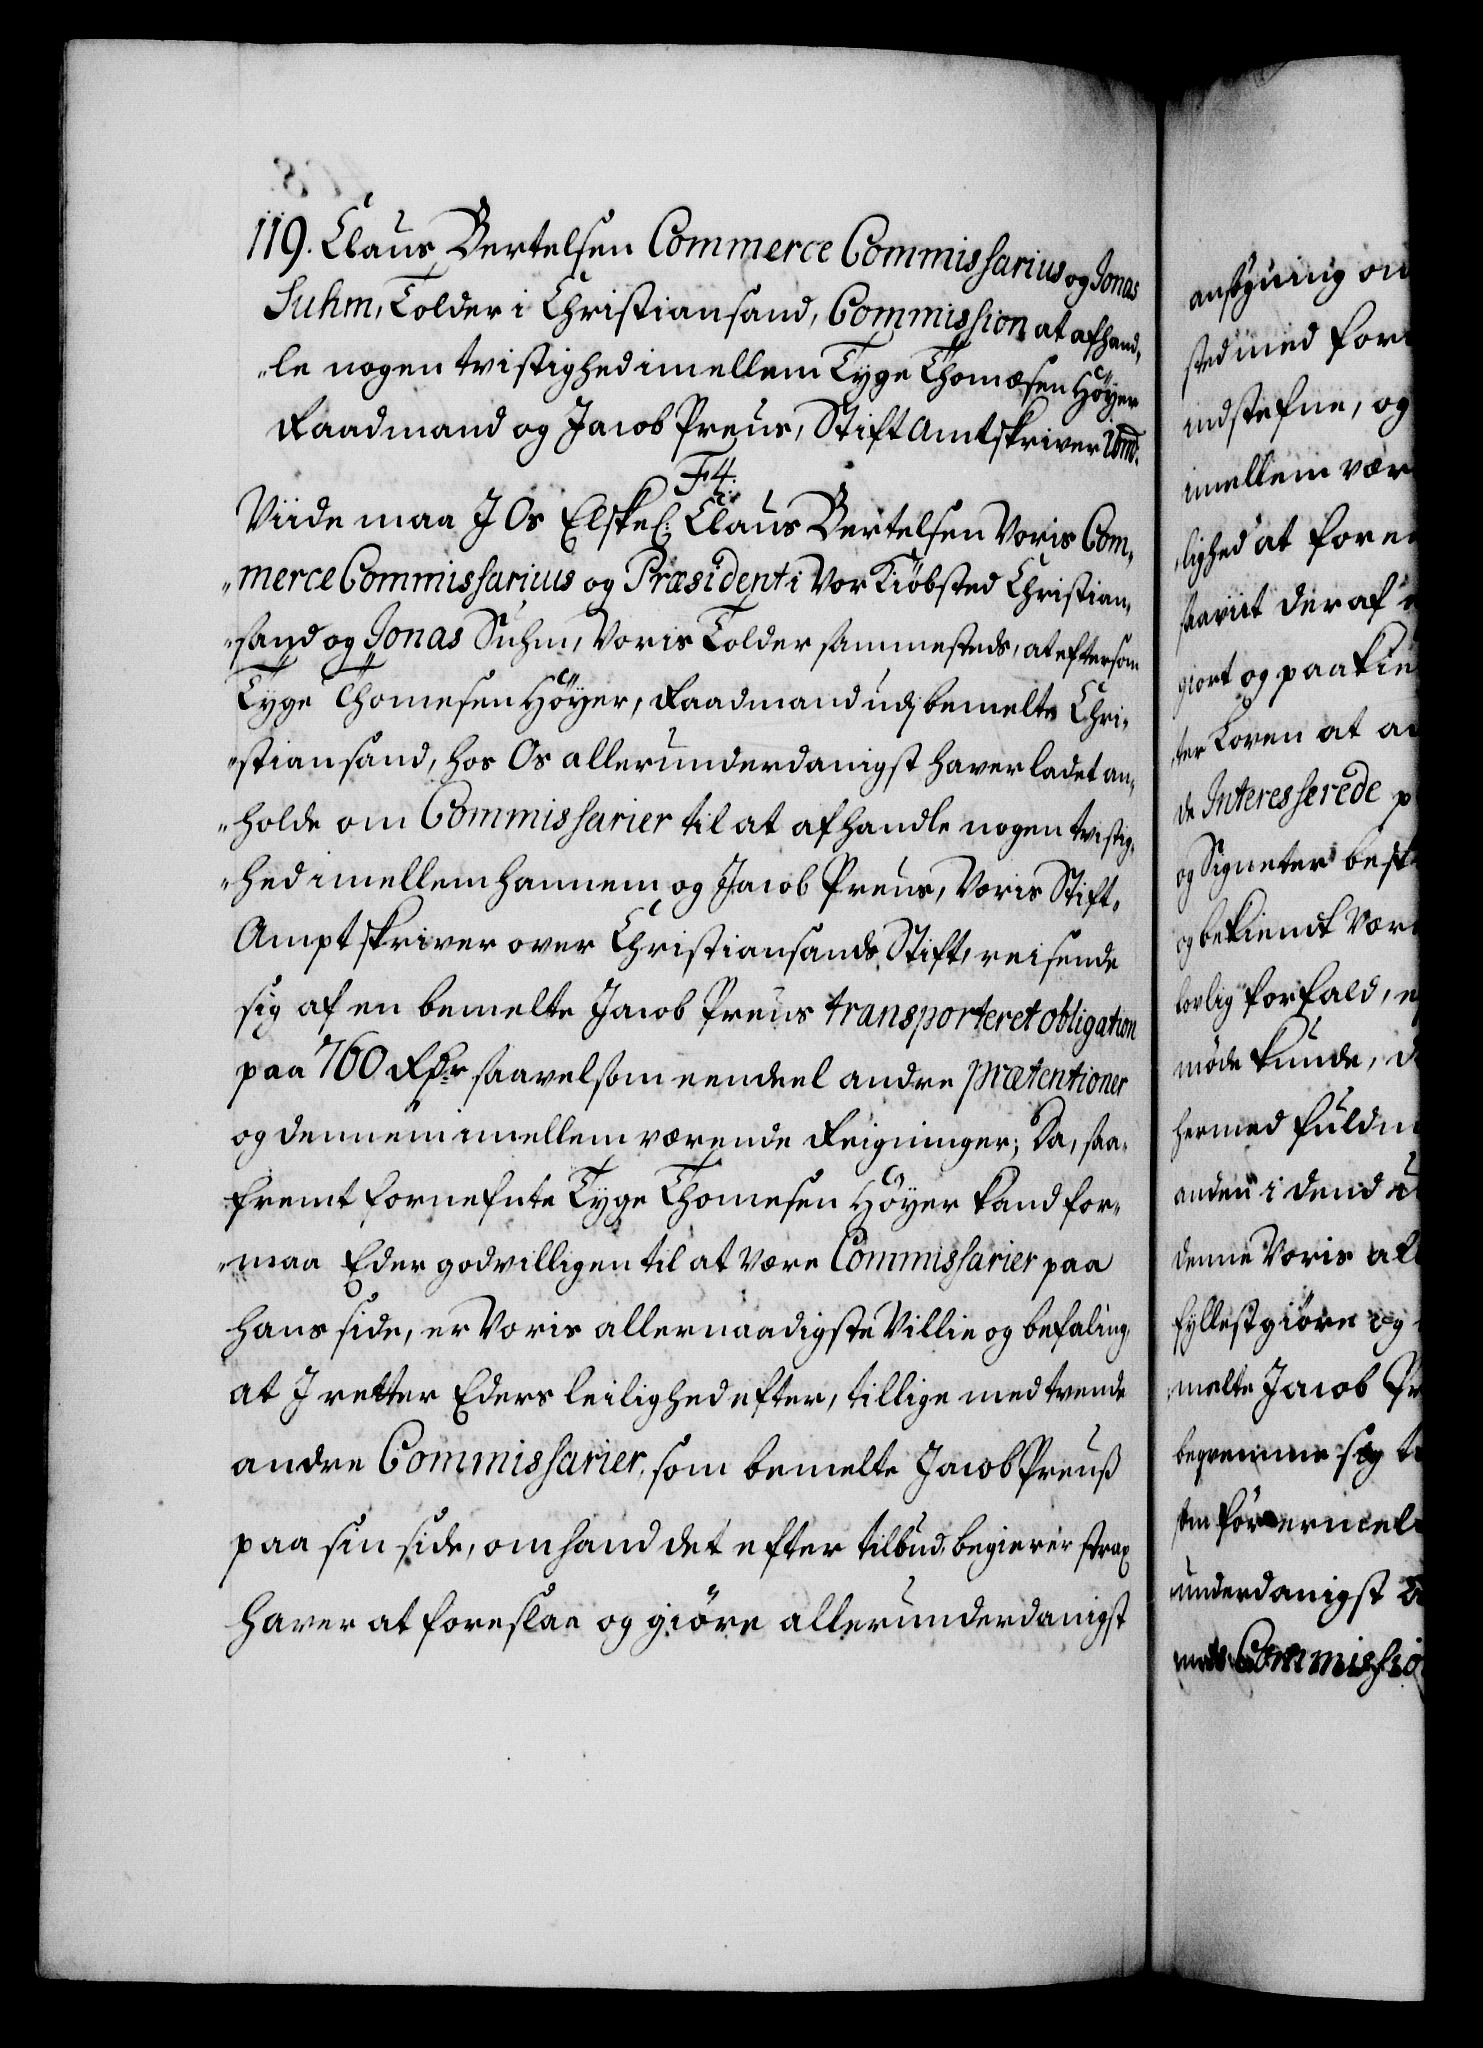 119. Claus Bertelsen Commerce Commissarius og Jonas
Suhm, Tolder i Christiansand, Commission at afhand„
„le nogen tvistighed imellem Tyge Thomæsen Höyer
Raadmand og Jacob Preus, Stift Amtskriver ibmd.
F4.
Viide maa J Os Elskel: Claus Bertelsen Voris Com„
„merce Commissarius og Præsident i Vor Kiöbsted Christian„
„sand og Jonas Suhm, Voris Tolder sammesteds, at eftersom
Tyge Thomesen Höyer, Raadmand udj bemelte Chri„
„stiansand, hos Os allerunderdanigst haver ladet an„
„holde om Commissarier til at afhandle nogen tvistig„
„hed imellem hannem og Jacob Preus, Voris Stift„
Amptskriver over Christiansands Stift, reisende
sig af en bemelte Jacob Preus transporteret obligation
paa 760 Rdr saavelsom eendeel andre prætentioner
og dennem imellem værende Reigninger; Da, saa„
fremt fornefnte Tyge Thomesen Höyer kand for„
„maa Eder godvilligen til at være Commissarier paa
hans side, er Voris allernaadigste Villie og befaling,
at J retter Eders leilighed efter, tillige med tvende
andre Commissarier, som bemelte Jacob Preuß
paa sin side, om hand det efter tilbud, begierer strax
haver at foreslaa og giöre allerunderdanigst
ansögning om
sted med for
indstefne, og
imellem vær
„lighed at foren
skaviit deraf
giort og paakie
„ter Loven at a
de Interesserede p
og Signeter best
og bekiendt vær
lovlig forfald, e
möde kunde, d
hermed fuldm
anden i dend
denne Voris al
fyllestgiöre og
„melte Jacob Pr
beqvemme sig t
som för ermel
underdanigst
Commissio